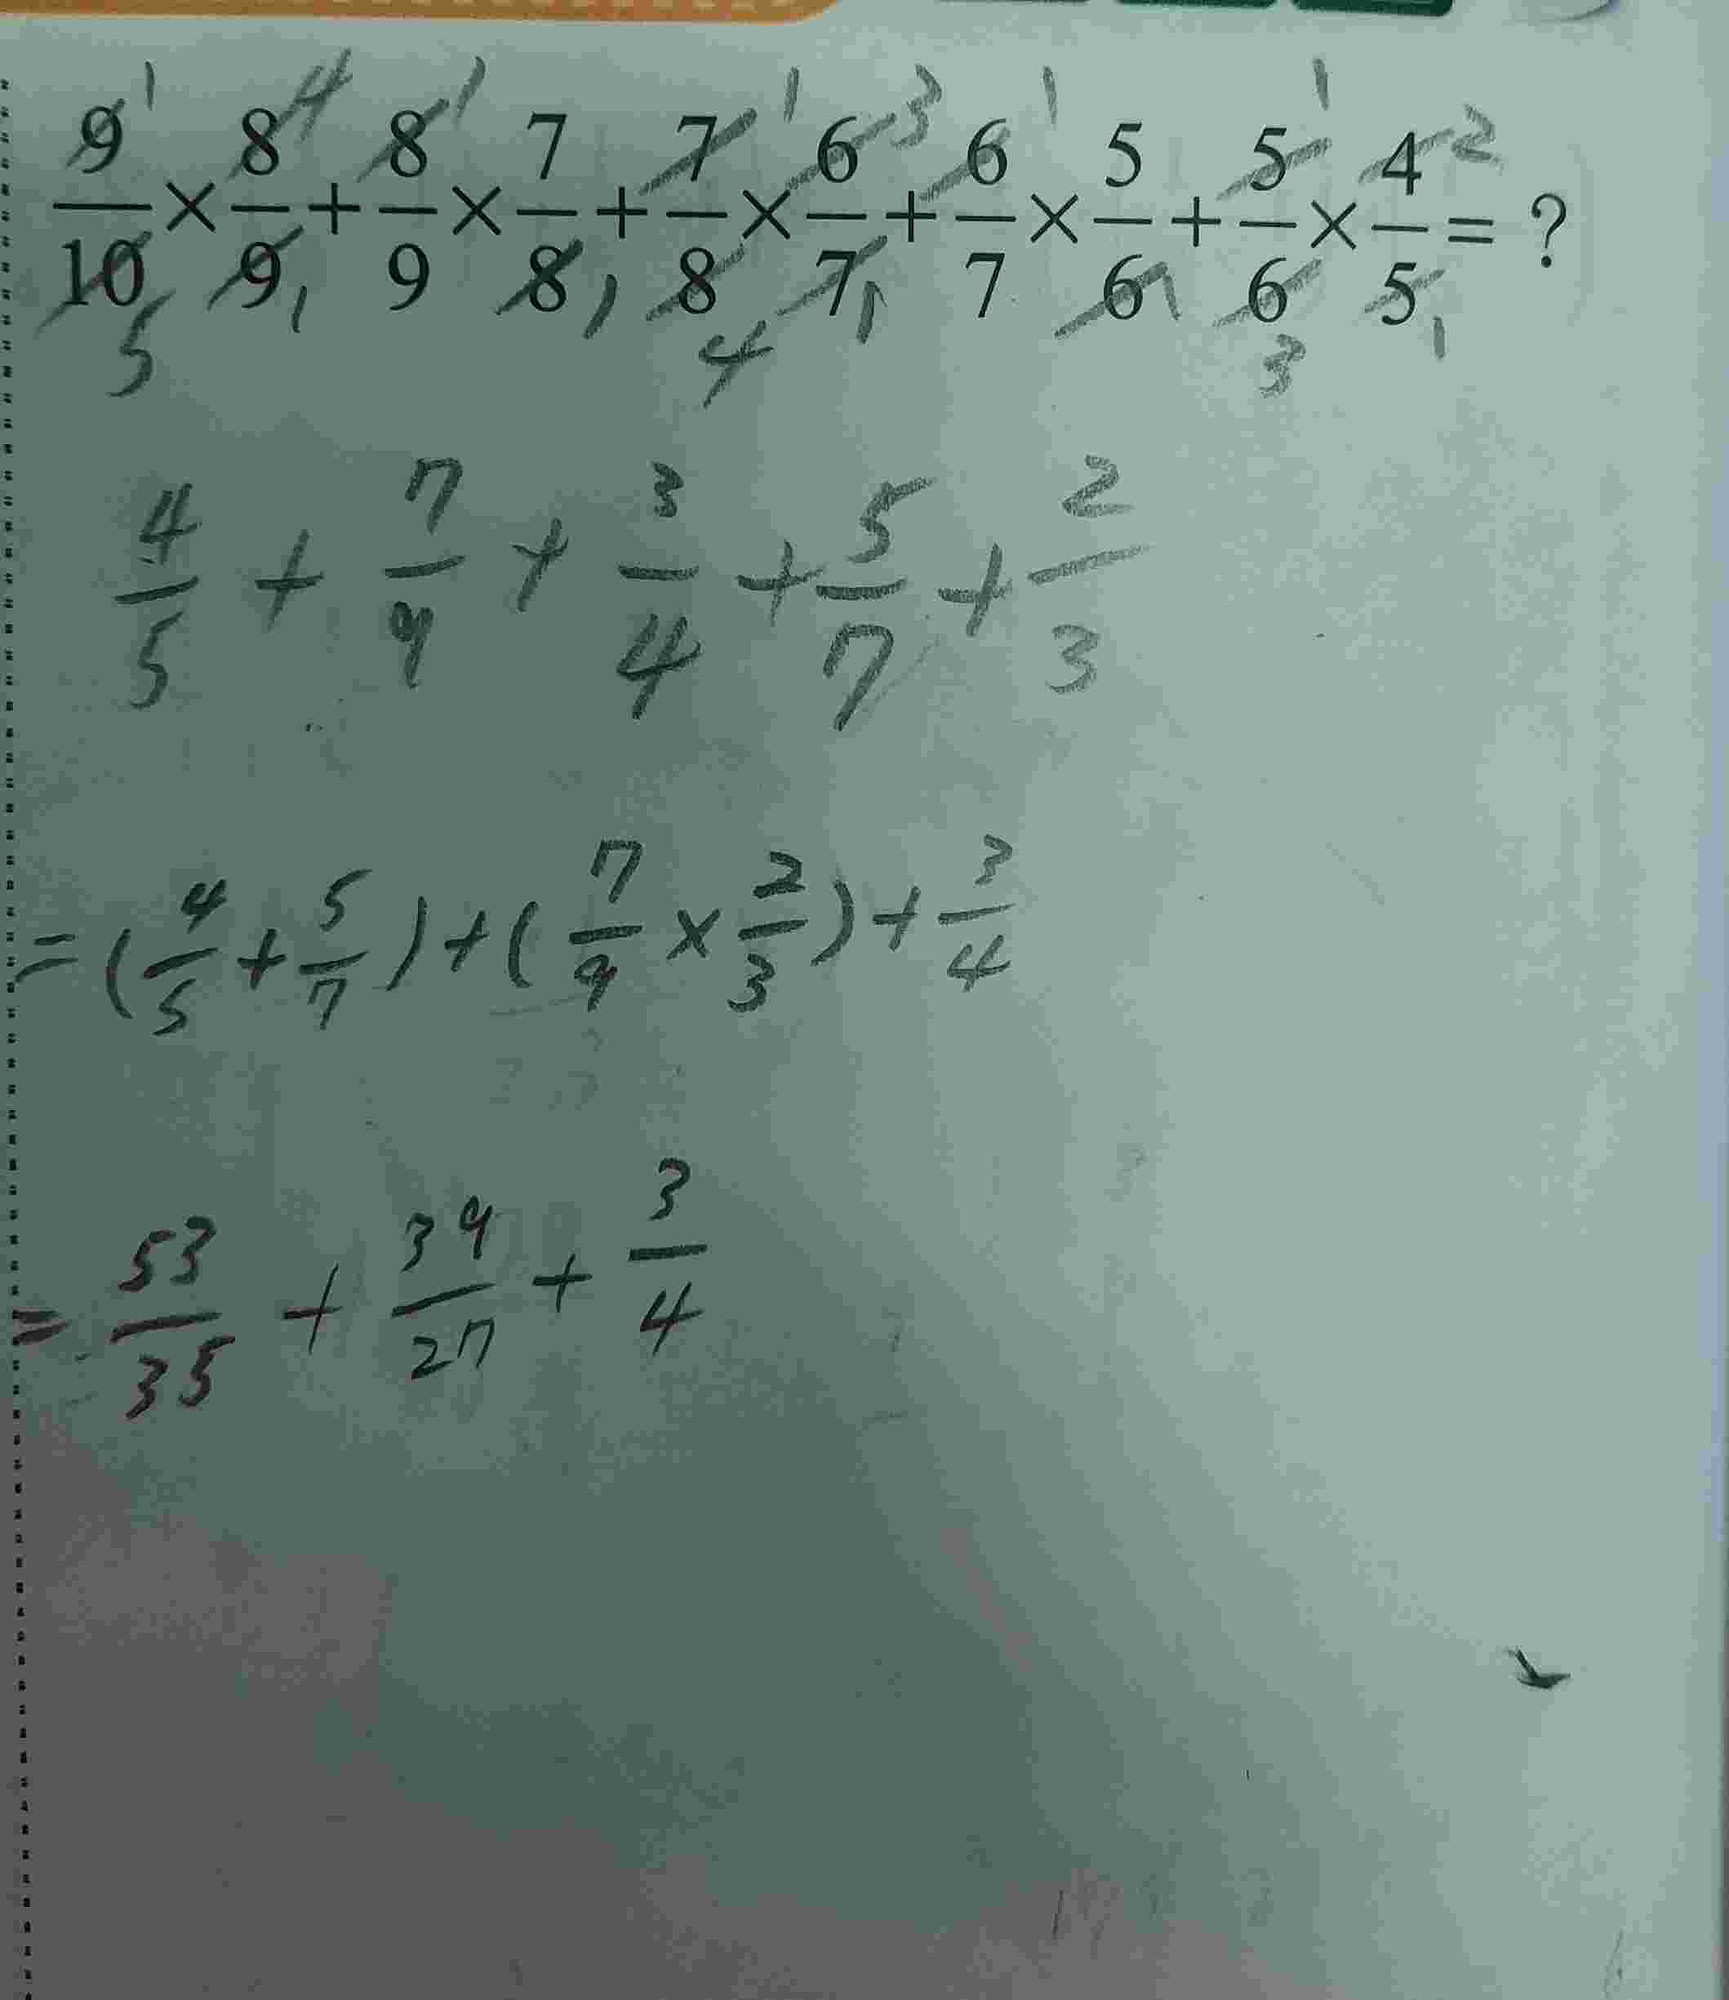 9/10 × 8/9 + 8/9 × 7/8 + 7/8 × 6/7 + 6/7 × 5/6 + 5/6 × 4/5 = ?
4/5 + 7/9 + 3/4 + 5/7 + 2/3
= (4/5 + 5/7) + (7/9 × 2/3) + 3/4
= 53/35 + 39/27 + 3/4